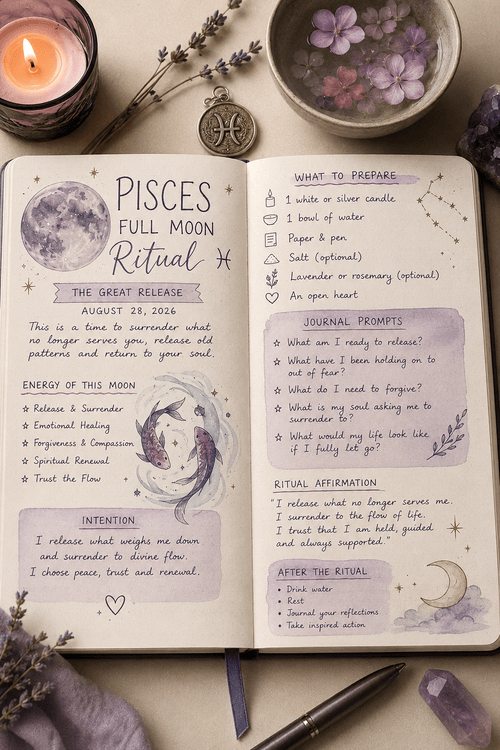 PISCES
FULL MOON
Ritual ♓
THE GREAT RELEASE
AUGUST 28, 2026
This is a time to surrender what
no longer serves you, release old
patterns and return to your soul.
ENERGY OF THIS MOON
☆ Release & Surrender
☆ Emotional Healing
☆ Forgiveness & Compassion
☆ Spiritual Renewal
☆ Trust the Flow
INTENTION
I release what weighs me down
and surrender to divine flow.
I choose peace, trust and renewal.
WHAT TO PREPARE
1 white or silver candle
1 bowl of water
Paper & pen
Salt (optional)
Lavender or rosemary (optional)
An open heart
JOURNAL PROMPTS
☆ What am I ready to release?
☆ What have I been holding on to
out of fear?
☆ What do I need to forgive?
☆ What is my soul asking me to
surrender to?
☆ What would my life look like
if I fully let go?
RITUAL AFFIRMATION
"I release what no longer serves me.
I surrender to the flow of life.
I trust that I am held, guided
and always supported."
AFTER THE RITUAL
• Drink water
• Rest
• Journal your reflections
• Take inspired action